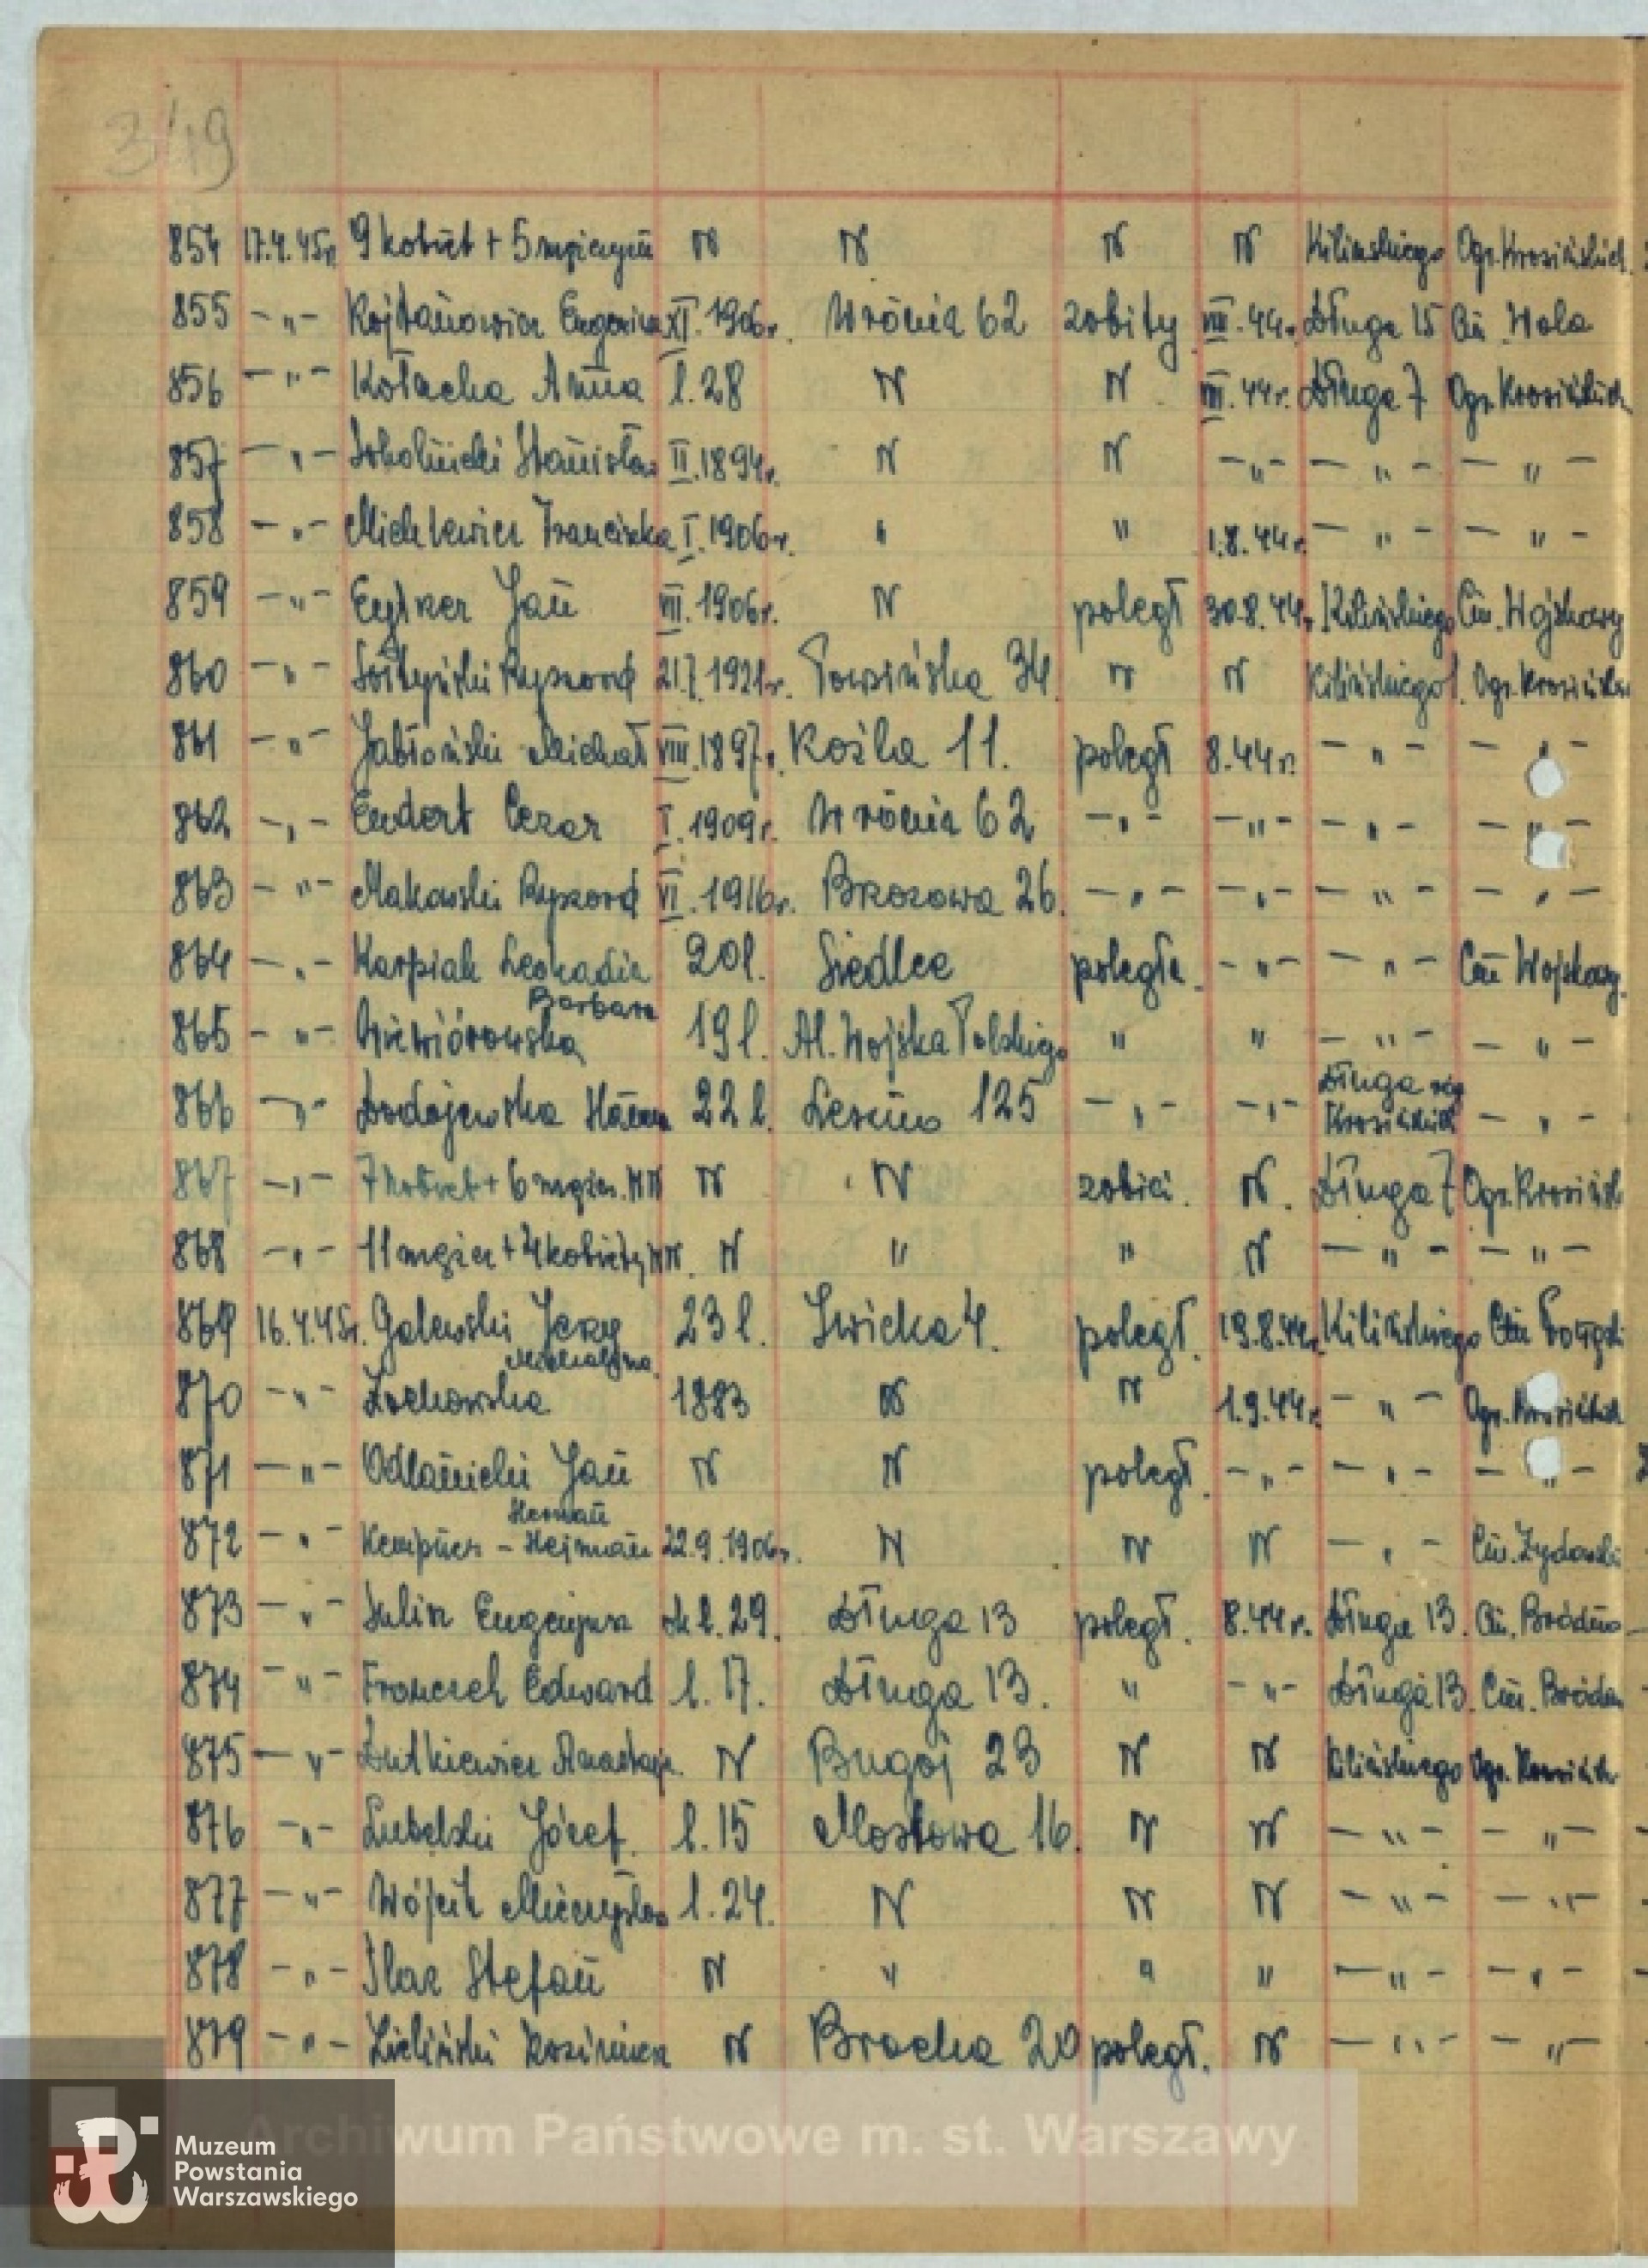 349
854 17.4.45r. 9 kobiet + 5 mężczyzn N N N N Kilinskiego Ogr. Krasińskich
855 -"- Eugeniusz XI.1906r. Wrōnia 62 zabity VIII.44r. Długa 15 Cm. Wola
856 -"- Kołacha Anna l.28 N N VIII.44r. Długa 7 Ogr. Krasińskich
857 -"- Stanisław II.1894r. N N -"- -"- -"-
858 -"- Franciszka I.1906r. " " 1.8.44r. -"- -"-
859 -"- Jan VII.1906r. N poległ 30.8.44r. Kilińskiego Cm. Wojskowy
860 -"- Ryszard 21.7.1921r. Powsińska 34 N N Kilińskiego 1. Ogr. Krasińskich
861 -"- Jabłoński Michał VIII.1897r. Koźla 11. poległ 8.44r. -"- -"-
862 -"- Endert Cezar I.1909r. Wrōnia 62 -"- -"- -"- -"-
863 -"- Makowski Ryszard VI.1916r. Brzozowa 26. -"- -"- -"- -"-
864 -"- Karpiak Leokadia 20l. Siedlce poległa. -"- -"- Cm Wojskowy.
Barbara
865 -"- Wiewiórowska 19l. Al. Wojska Polskiego " " -"- -"-
Długa róg
866 -"- 22l. Leszno 125 -"- -"- Krasińskich -"-
867 -"- 7 kobiet + 6 mężcz. NN N N zabici. N. Długa 7 Ogr. Krasińsk
868 -"- 11 mężcz + 4 kobiety NN. N " " N -"- -"-
869 16.4.45r. Galewski Jerzy 23l. Iwicka 4. poległ. 19.8.44r. Kilińskiego Cm Powązki
Michalina
870 -"- Żochowska 1883 N N 1.9.44r. -"- Ogr. Krasińskich
871 -"- Odlanicki Jan N N poległ. -"- -"- -"-
Herman
872 -"- Kempner - Hejman 22.9.1906r. N N N -"- Cm. Żydowski
873 -"- Eugeniusz ok l.29. Długa 13 poległ. 8.44r. Długa 13. Cm. Bródno
874 -"- Franczek Edward l.17. Długa 13. " -"- Długa 13. Cm. Bródno
875 -"- Dutkiewicz N Bugaj 23 N N Kilińskiego Ogr. Krasińsk
876 -"- Lubelski Józef. l.15 Mostowa 16. N N -"- -"-
877 -"- Wójcik Mieczysław l.24. N N N -"- -"-
878 -"- Ślaz Stefan N " " " -"- -"-
879 -"- Zieliński Kazimierz N Bracka 20 poległ. N -"- -"-
Archiwum Państwowe m. st. Warszawy
Muzeum
Powstania
Warszawskiego